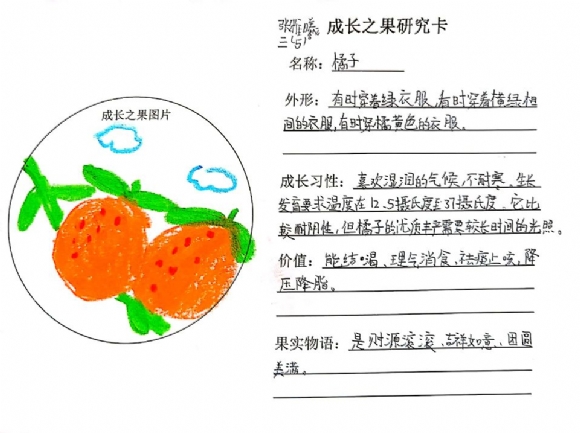 张雅曦 成长之果研究卡
二(5)
名称：橘子
成长之果图片
外形：有时穿着绿衣服,有时穿着黄绿相
间的衣服,有时穿橘黄色的衣服。
成长习性：喜欢湿润的气候,不耐寒、生长
发育要求温度在12.5摄氏度至37摄氏度、它比
较耐阴性,但橘子的优质丰产需要较长时间的光照。
价值：能结 理气消食、祛痰止咳,降
压降脂。
果实物语：是财源滚滚、吉祥如意、团圆
美满。